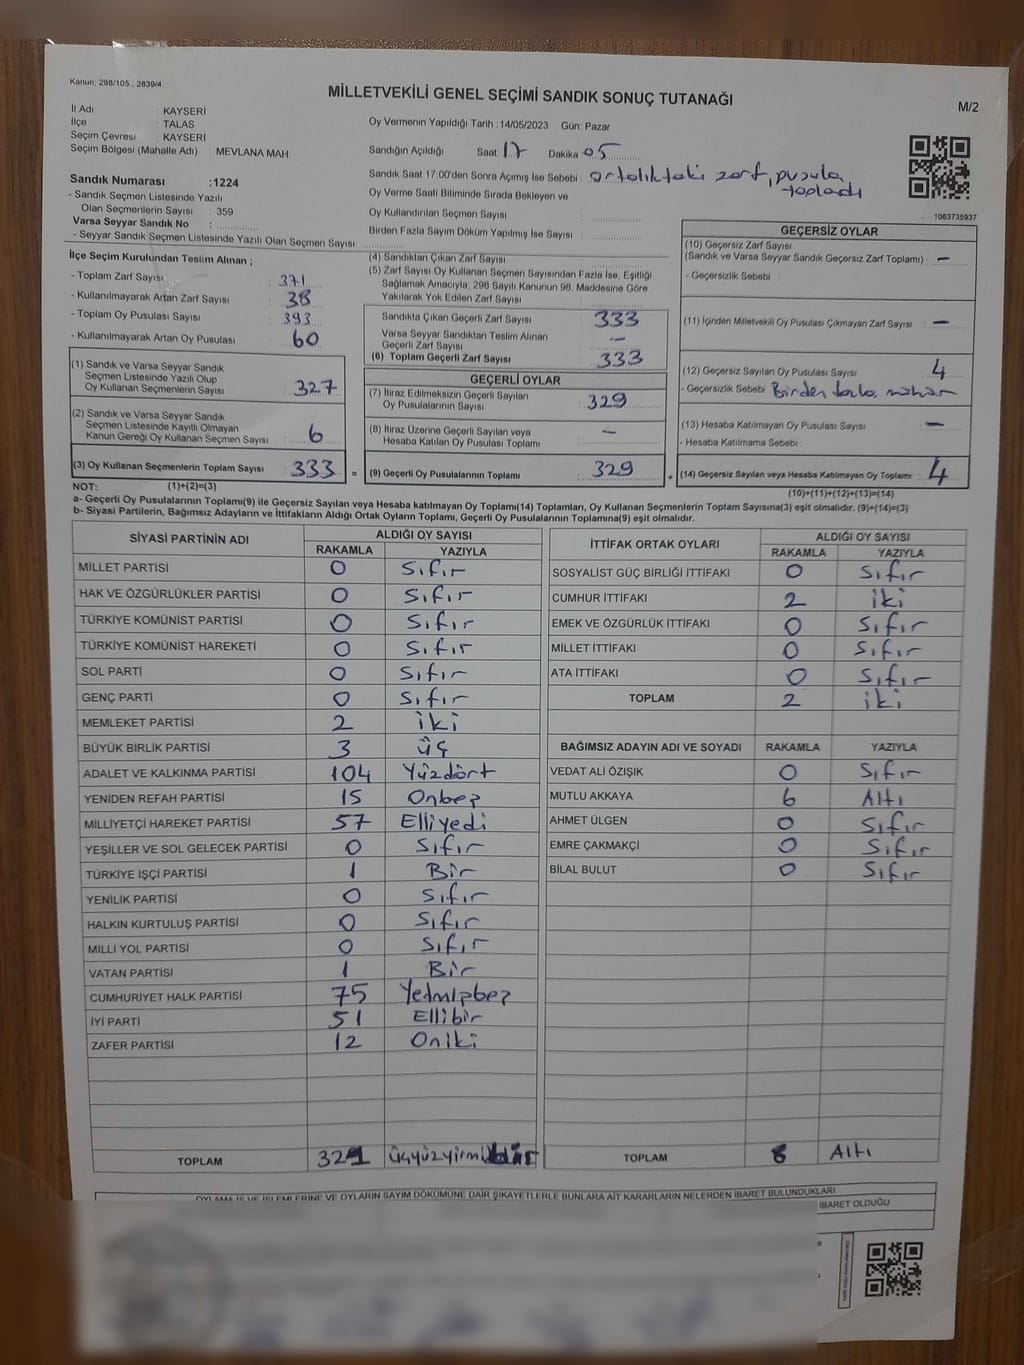 Kanun; 298/105 , 2839/4
MİLLETVEKİLİ GENEL SEÇİMİ SANDIK SONUÇ TUTANAĞI
M/2
İl Adı : KAYSERİ
İlçe : TALAS
Seçim Çevresi : KAYSERİ
Seçim Bölgesi (Mahalle Adı) : MEVLANA MAH.
Oy Vermenin Yapıldığı Tarih : 14/05/2023 Gün: Pazar
Sandığın Açıldığı Saat: 17 Dakika 05
Sandık Saat 17:00'den Sonra Açımış İse Sebebi : ortalıktaki zarf, pusula
topladı
Oy Verme Saati Bitiminde Sırada Bekleyen ve
Oy Kullandırılan Seçmen Sayısı :
Birden Fazla Sayım Döküm Yapılmış İse Sayısı :
1063735937
Sandık Numarası :1224
- Sandık Seçmen Listesinde Yazılı
Olan Seçmenlerin Sayısı : 359
Varsa Seyyar Sandık No :
- Seyyar Sandık Seçmen Listesinde Yazılı Olan Seçmen Sayısı:
İlçe Seçim Kurulundan Teslim Alınan ;
- Toplam Zarf Sayısı : 371
- Kullanılmayarak Artan Zarf Sayısı : 38
- Toplam Oy Pusulası Sayısı : 393
- Kullanılmayarak Artan Oy Pusulası : 60
(1) Sandık ve Varsa Seyyar Sandık
Seçmen Listesinde Yazılı Olup
Oy Kullanan Seçmenlerin Sayısı : 327
(2) Sandık ve Varsa Seyyar Sandık
Seçmen Listesinde Kayıtlı Olmayan
Kanun Gereği Oy Kullanan Seçmen Sayısı : 6
(3) Oy Kullanan Seçmenlerin Toplam Sayısı : 333 =
(4) Sandıktan Çıkan Zarf Sayısı :
(5) Zarf Sayısı Oy Kullanan Seçmen Sayısından Fazla İse, Eşitliği
Sağlamak Amacıyla; 298 Sayılı Kanunun 98. Maddesine Göre
Yakılarak Yok Edilen Zarf Sayısı :
Sandıkta Çıkan Geçerli Zarf Sayısı : 333
Varsa Seyyar Sandıktan Teslim Alınan
Geçerli Zarf Sayısı : —
(6) Toplam Geçerli Zarf Sayısı : 333
GEÇERLİ OYLAR
(7) İtiraz Edilmeksizin Geçerli Sayılan
Oy Pusulalarının Sayısı : 329
(8) İtiraz Üzerine Geçerli Sayılan veya
Hesaba Katılan Oy Pusulası Toplamı : —
(9) Geçerli Oy Pusulalarının Toplamı : 329 +
GEÇERSİZ OYLAR
(10) Geçersiz Zarf Sayısı
(Sandık ve Varsa Seyyar Sandık Geçersiz Zarf Toplamı) : —
- Geçersizlik Sebebi :
(11) İçinden Milletvekili Oy Pusulası Çıkmayan Zarf Sayısı : —
(12) Geçersiz Sayılan Oy Pusulası Sayısı : 4
- Geçersizlik Sebebi : Birden fazla mühür
(13) Hesaba Katılmayan Oy Pusulası Sayısı : —
- Hesaba Katılmama Sebebi :
(14) Geçersiz Sayılan veya Hesaba Katılmayan Oy Toplamı : 4
NOT: (1)+(2)=(3)
(10)+(11)+(12)+(13)=(14)
a- Geçerli Oy Pusulalarının Toplamı(9) ile Geçersiz Sayılan veya Hesaba katılmayan Oy Toplamı(14) Toplamları, Oy Kullanan Seçmenlerin Toplam Sayısına(3) eşit olmalıdır. (9)+(14)=(3)
b- Siyasi Partilerin, Bağımsız Adayların ve İttifakların Aldığı Ortak Oyların Toplamı, Geçerli Oy Pusulalarının Toplamına(9) eşit olmalıdır.
SİYASİ PARTİNİN ADI ALDIĞI OY SAYISI
RAKAMLA YAZIYLA
MİLLET PARTİSİ 0 Sıfır
HAK VE ÖZGÜRLÜKLER PARTİSİ 0 Sıfır
TÜRKİYE KOMÜNİST PARTİSİ 0 Sıfır
TÜRKİYE KOMÜNİST HAREKETİ 0 Sıfır
SOL PARTİ 0 Sıfır
GENÇ PARTİ 0 Sıfır
MEMLEKET PARTİSİ 2 İki
BÜYÜK BİRLİK PARTİSİ 3 üç
ADALET VE KALKINMA PARTİSİ 104 Yüzdört
YENİDEN REFAH PARTİSİ 15 Onbeş
MİLLİYETÇİ HAREKET PARTİSİ 57 Elliyedi
YEŞİLLER VE SOL GELECEK PARTİSİ 0 Sıfır
TÜRKİYE İŞÇİ PARTİSİ 1 Bir
YENİLİK PARTİSİ 0 Sıfır
HALKIN KURTULUŞ PARTİSİ 0 Sıfır
MİLLİ YOL PARTİSİ 0 Sıfır
VATAN PARTİSİ 1 Bir
CUMHURİYET HALK PARTİSİ 75 Yetmişbeş
İYİ PARTİ 51 Ellibir
ZAFER PARTİSİ 12 Oniki
TOPLAM 321 üçyüzyirmibir
İTTİFAK ORTAK OYLARI ALDIĞI OY SAYISI
RAKAMLA YAZIYLA
SOSYALİST GÜÇ BİRLİĞİ İTTİFAKI 0 Sıfır
CUMHUR İTTİFAKI 2 iki
EMEK VE ÖZGÜRLÜK İTTİFAKI 0 Sıfır
MİLLET İTTİFAKI 0 Sıfır
ATA İTTİFAKI 0 Sıfır
TOPLAM 2 iki
BAĞIMSIZ ADAYIN ADI VE SOYADI RAKAMLA YAZIYLA
VEDAT ALİ ÖZIŞIK 0 Sıfır
MUTLU AKKAYA 6 Altı
AHMET ÜLGEN 0 Sıfır
EMRE ÇAKMAKÇİ 0 Sıfır
BİLAL BULUT 0 Sıfır
TOPLAM 6 Altı
OYLAMA İŞ VE İŞLEMLERİNE VE OYLARIN SAYIM DÖKÜMÜNE DAİR ŞİKAYETLERLE BUNLARA AİT KARARLARIN NELERDEN İBARET BULUNDUKLARI
İBARET OLDUĞU